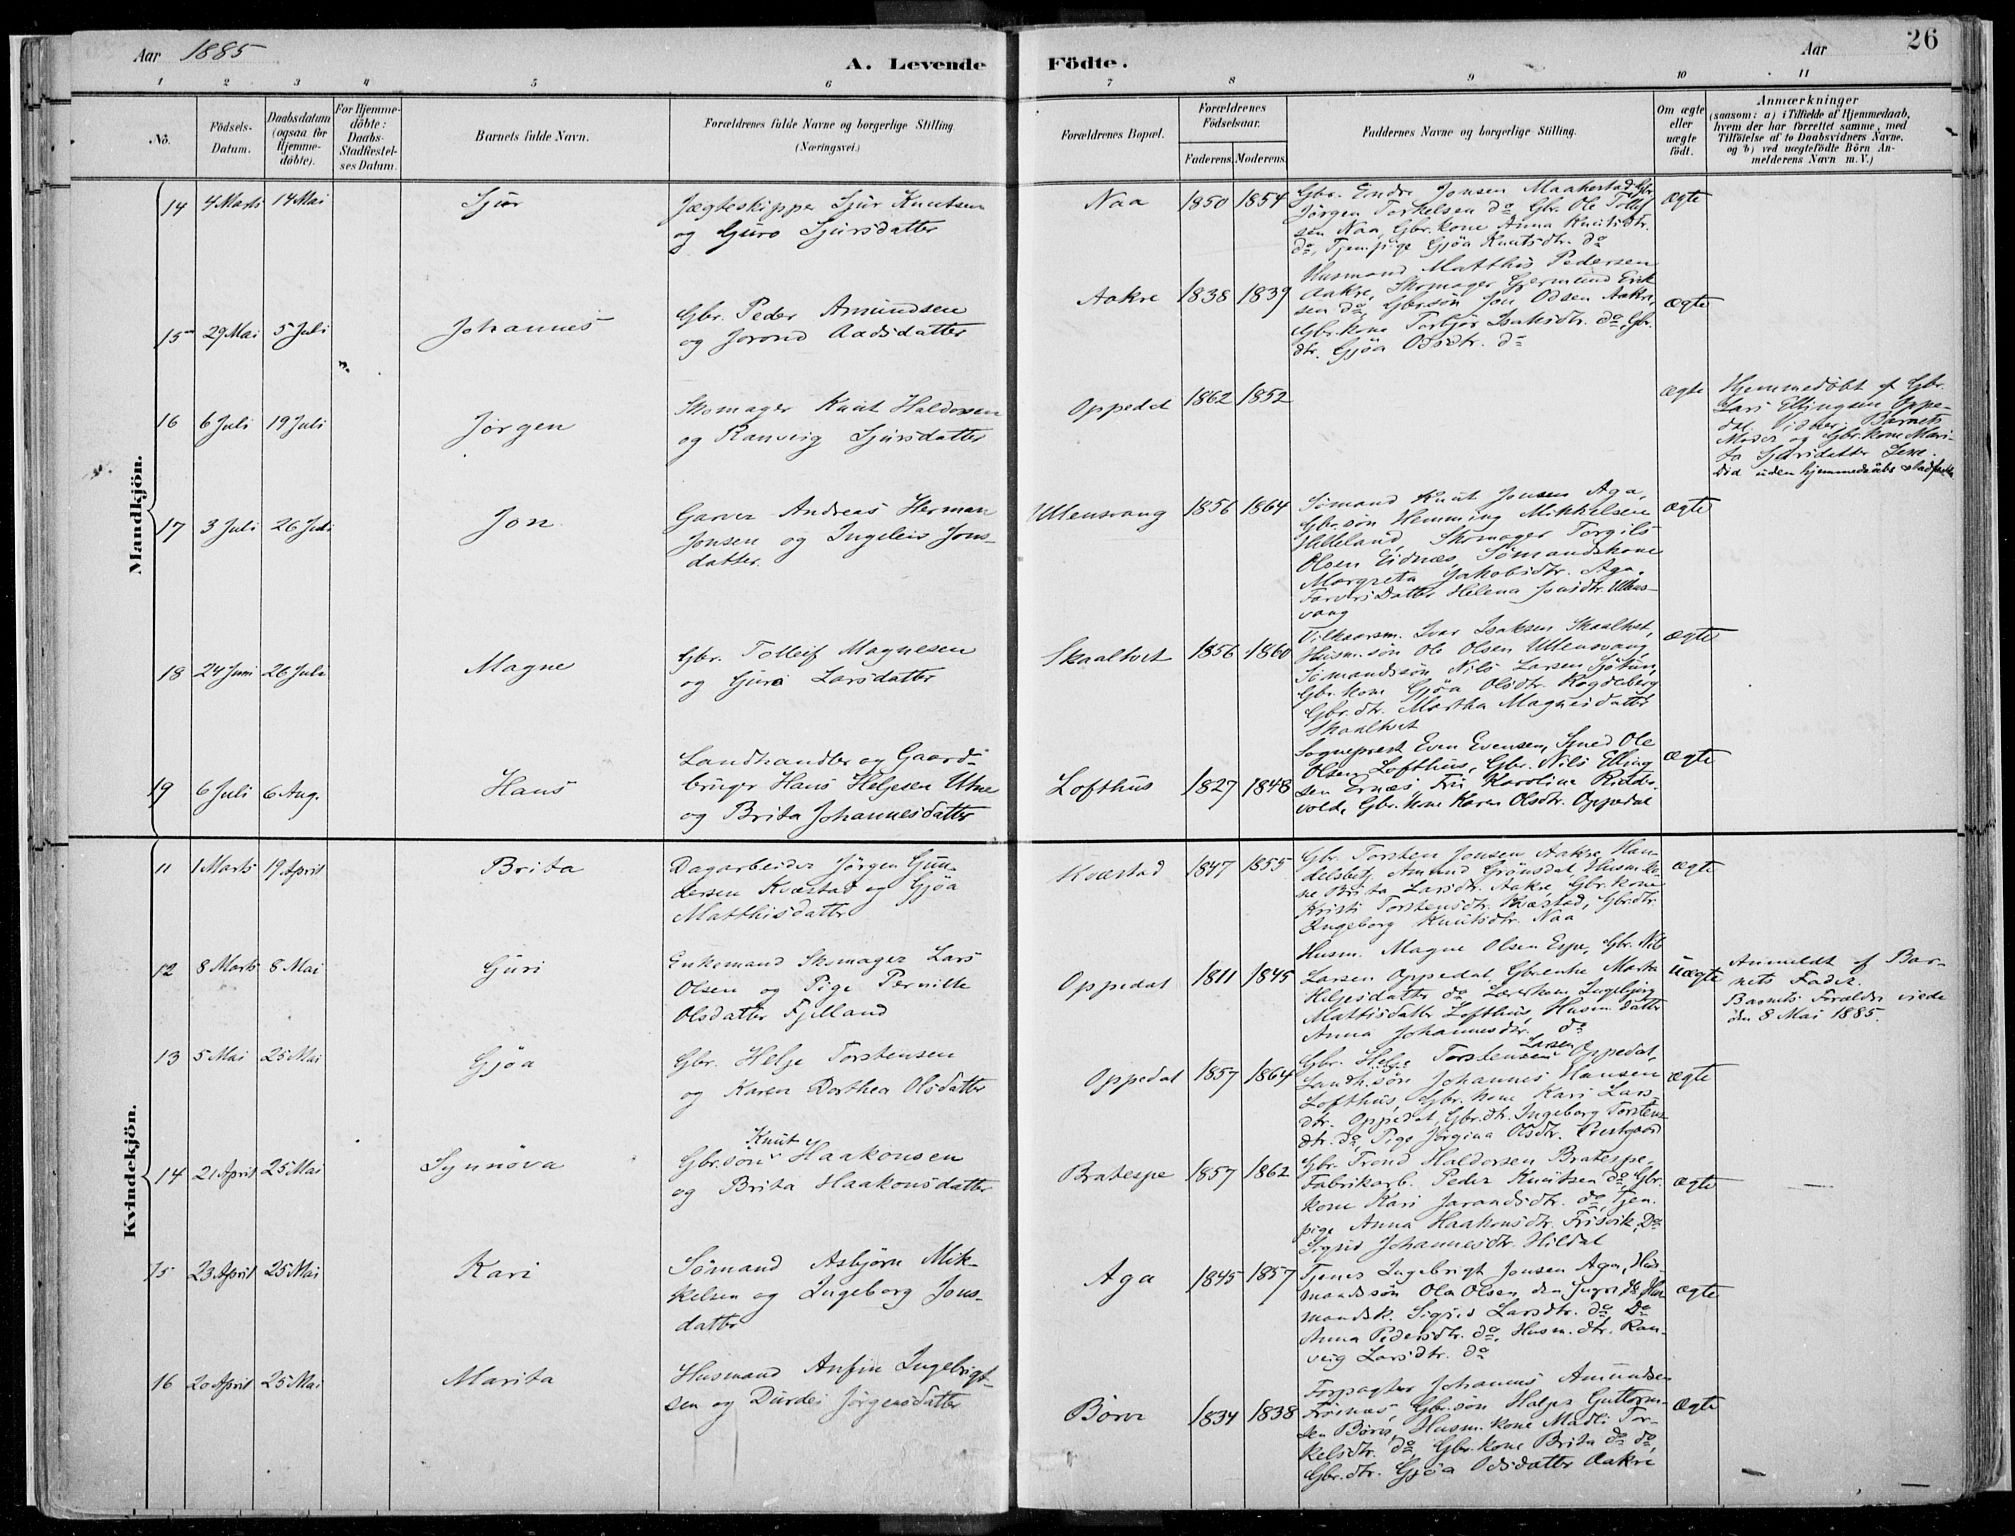 Aar 1885
A. Levende Födte.
Aar
26
1 2 3 4 5 6 7 8 9 10 11
No.
Födsels-Datum.
Daabsdatum (ogsaa for Hjemmedöbte).
For Hjemmedöbte: Daabs-Stadfæstelses Datum.
Barnets fulde Navn.
Forældrenes fulde Navne og borgerlige Stilling (Næringsvei.)
Forældrenes Bopæl.
Forældrenes Födselsaar.
Faderens. Moderens.
Faddernes Navne og borgerlige Stilling.
Om ægte eller uægte födt.
Anmærkninger
(saasom: a) i Tilfælde af Hjemmedaab,
hvem der har forrettet samme, med
Tilföielse af to Daabsvidners Navne.
og b) ved uægtefödte Börn An-
melderens Navn m. V.)
Mandkjön.
14 4 Marts 14 Mai Sjur
Jægteskipper Sjur Knutsen
og Guro Sjursdatter
Naa 1850 1854
Gbr. Endre Jonsen Maakestad, Gbr.
Jörgen Torkelsen do Gbr. Ole Tollef
sen Naa, Gbr.kone Anna Knutsdtr.
do, Tjen.pige Gjöa Knutsdtr. do
ægte
15 29 Mai 5 Juli Johannes
Gbr. Peder Amundsen
og Jorond Aadsdatter
Aakre 1838 1839
Husmand Matthis Pedersen
Aakre, Skomager Gjermund Erik
sen do, Gbr.sön Jon Odsen Aakre,
Gbr.kone Torbjör Isaksdtr. do, Gbr.
dtr. Gjöa Odsdtr. do
ægte
16 6 Juli 19 Juli Jörgen
Skomager Knut Haldorsen
og Ranveig Sjursdatter
Oppedal 1862 1852
ægte
Hjemmedöbt af Gbr.
Lars Ellingsen Oppe-
dal. Vidner: Barnets
Moder og Gbr.kone Mari-
ta Sjursdatter
Död uden hjemmedaabs stadfæstelse
17 3 Juli 26 Juli Jon
Garver Andreas Herman
Jonsen og Ingeleiv Jons-
datter.
Ullensvang 1856 1864
Sömand Knut Jonsen Aga,
Gbr.sön Hemming Mikkelsen
Helleland, Skomager Torgils
Olsen Eidnæs, Sömandskone
Margreta Jakobsdtr. Aga.
Farversdatter Helena Jonsdtr. Ullens-
vang
ægte
18 24 Juni 26 Juli Magne
Gbr. Tolleif Magnesen
og Guro Larsdatter
Skaaltvet 1856 1860
Vilkaarsm. Ivar Isaksen Skaaltvet,
Husm.sön Ole Olsen Ullensvang,
Sömandssön Nils Larsen Sjötun,
Gbr.kone Gjöa Olsdtr. Rogdeberg
Gbr.dtr. Martha Magnesdatter
Skaaltvet
ægte
19 6 Juli 6 Aug. Hans
Landhandler og Gaard-
bruger Hans Helgesen Utne
og Brita Johannesdatter
Lofthus 1827 1848
Sogneprest Even Evensen, Smed Ole
Olsen Lofthus, Gbr. Nils Elling
sen Ernæs, Frü Karoline Ridder
vold, Gbr.kone Karen Olsdtr. Oppedal
ægte
Kvindekjön.
11 1 Marts 19 April Brita
Dagarbeider Jörgen Gun-
dersen Kvæstad og Gjöa
Matthisdatter
Kvæstad 1847 1855
Gbr. Torsten Jonsen Aakre, Han-
delsbetj. Amund Grönsdal, Husm.ko-
ne Brita Larsdtr. Aakre, Gbr.kone
Kristi Torstensdtr. Kvæstad, Gbr.dtr.
Ingeborg Knutsdtr. Naa
ægte
12 8 Marts 8 Mai Guri
Enkemand Skomager Lars
Olsen og Pige Pernille
Olsdatter Fjelland
Oppedal 1811 1845
Husm. Magne Olsen Espe, Gbr. Nils
Larsen Oppedal, Gbr.enke Marta
Helgesdatter do Lærerkone Ingebjörg
Mattisdatter Lofthus, Husm. datter
Anna Johannesdtr. do
uægte
Anmeldt af Bar-
nets Fader.
Barnets Forældre viede
den 8 Mai 1885.
13 5 Mai 25 Mai Gjöa
Gbr. Helge Torstensen
og Karen Dorthea Olsdatter
Oppedal 1857 1864
Gbr. Helge Torstensen Larsen Oppedal,
Landh.sön Johannes Hansen
Lofthus, Gbr.kone Kari Lars-
dtr. Oppedal, Gbr.dtr. Ingeborg Torstens-
dtr. do, Pige Jörgina Olsdtr. Prestgaard
ægte
14 21 April 25 Mai Synnöva
Gbr.sön Knut Haakonsen
og Brita Haakonsdatter
Bratespe 1857 1862
Gbr. Trond Haldorsen Bratespe,
Fabrikarb. Peder Knutsen do, Gbr.
kone Kari Jarandsdtr. do, Tjen.
pige Anna Haakonsdtr. Frisvik, Do
Sigrid Johannesdtr. Hildal
ægte
15 23 April 25 Mai Kari
Sömand Asbjörn Mik-
kelsen og Ingeborg Jons-
datter
Aga 1845 1857
Tjener Ingebrigt Jonsen Aga, Hus-
mandssön Ola Olsen den yngre, do Hus
mandsk. Sigrid Larsdtr. do Do
Anna Pedersdtr. do, Husm.dtr. Ran-
veig Larsdtr. do
ægte
16 20 April 25 Mai Marita
Husmand Anfin Ingebrigt-
sen og Durdei Jörgensdatter
Börve 1834 1838
Forpagter Johannes Amundsen
Frösnæs, Gbr.sön Helge Guttorm-
sen Börve, Husm.kone Madli Tor-
kelsdtr. do, Gbr.kone Brita do do,
Gbr.dtr. Gjöa Odsdatter Aakre
ægte